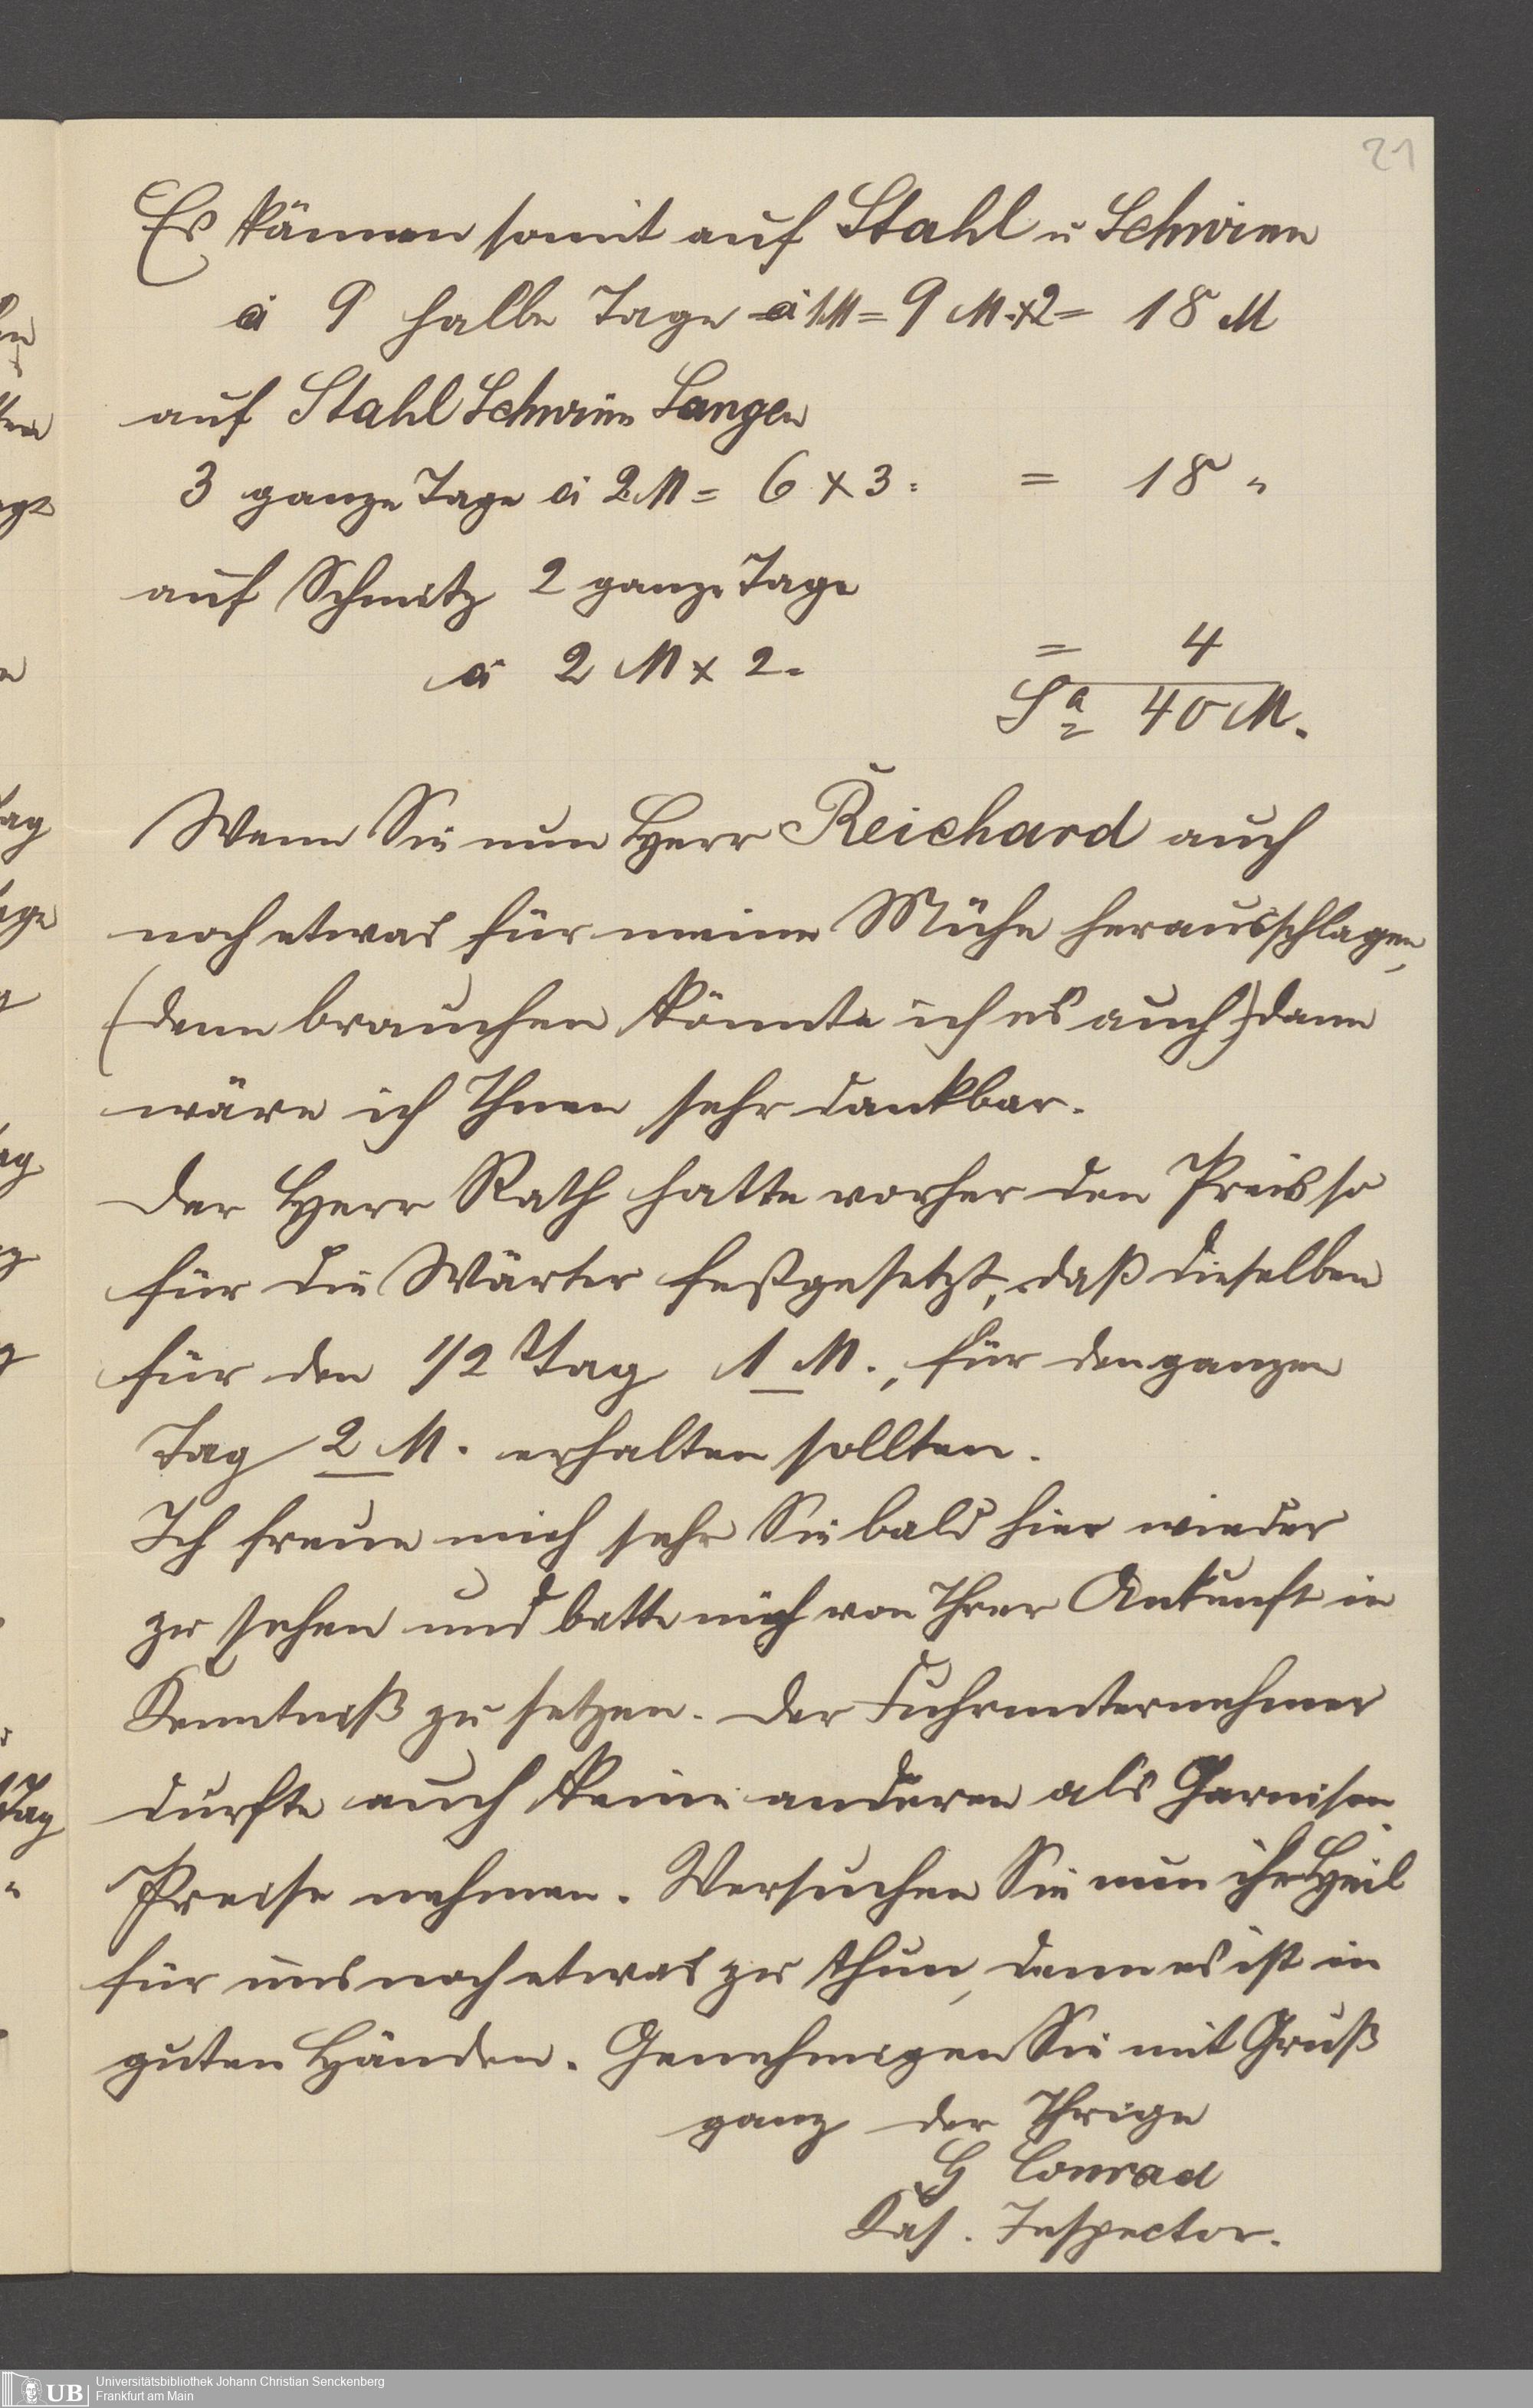 21
Es kämen somit auf Stahl u Schwinn
à 9 halbe Tage à 1M = 9 M. x 2 = 18 M
auf Stahl Schwinn Langen
3 ganze Tage à 2 M = 6 x 3. = 18 "
auf Schmitz 2 ganze Tage
à 2 M x 2. = 4
Sa = 40 M.
Wenn Sie nun Herr Reichard auch
noch etwas für meine Mühe herausschlagen,
(denn brauchen könnte ich es auch) dann
wäre ich Ihnen sehr dankbar.
Der Herr Rath hatte vorher den Preis so
für die Wärter festgesetzt, daß dieselben
für den 1/2 Tag 1 M., für den ganzen
Tag 2 M. erhalten sollten.
Ich freue mich sehr Sie bald hier wieder
zu sehen und bitte mich von Ihrer Ankunft in
Kenntniß zu setzen. Der Fuhrunternehmer
durfte auch keine anderen als Garnison
Preise nehmen. Versuchen Sie nun ihr Heil
für uns noch etwas zu thun, denn es ist in
guten Händen. Genehmigen Sie mit Gruß
ganz der Ihrige
G Conrad
Kas. Inspector.
UB
Universitätsbibliothek Johann Christian Senckenberg
Frankfurt am Main